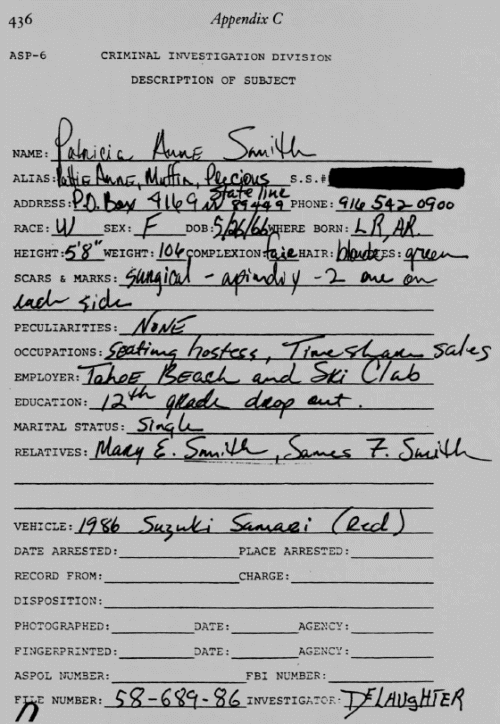 436 Appendix C
ASP-6 CRIMINAL INVESTIGATION DIVISION
DESCRIPTION OF SUBJECT
NAME: Patricia Anne Smith
ALIAS: Pattie Anne, Muffin, Precious S.S.#
State line
ADDRESS: P.O. Box 4169 89449 PHONE: 916 542 0900
RACE: W SEX: F DOB: 5/26/66 WHERE BORN: LR, AR.
HEIGHT: 5'8" WEIGHT: 106 COMPLEXION: fair HAIR: blonde ES: green
SCARS & MARKS: Surgical - - 2 one on
each side
PECULIARITIES: NONE
OCCUPATIONS: Seating hostess, Time share sales
EMPLOYER: Tahoe Beach and Ski Club
EDUCATION: 12th grade drop out.
MARITAL STATUS: Single
RELATIVES: Mary E. Smith, James F. Smith
VEHICLE: 1986 Suzuki Samari (Red)
DATE ARRESTED: PLACE ARRESTED:
RECORD FROM: CHARGE:
DISPOSITION:
PHOTOGRAPHED: DATE: AGENCY:
FINGERPRINTED: DATE: AGENCY:
ASPOL NUMBER: FBI NUMBER:
FILE NUMBER: 58-689-86 INVESTIGATOR: DELAUGHTER